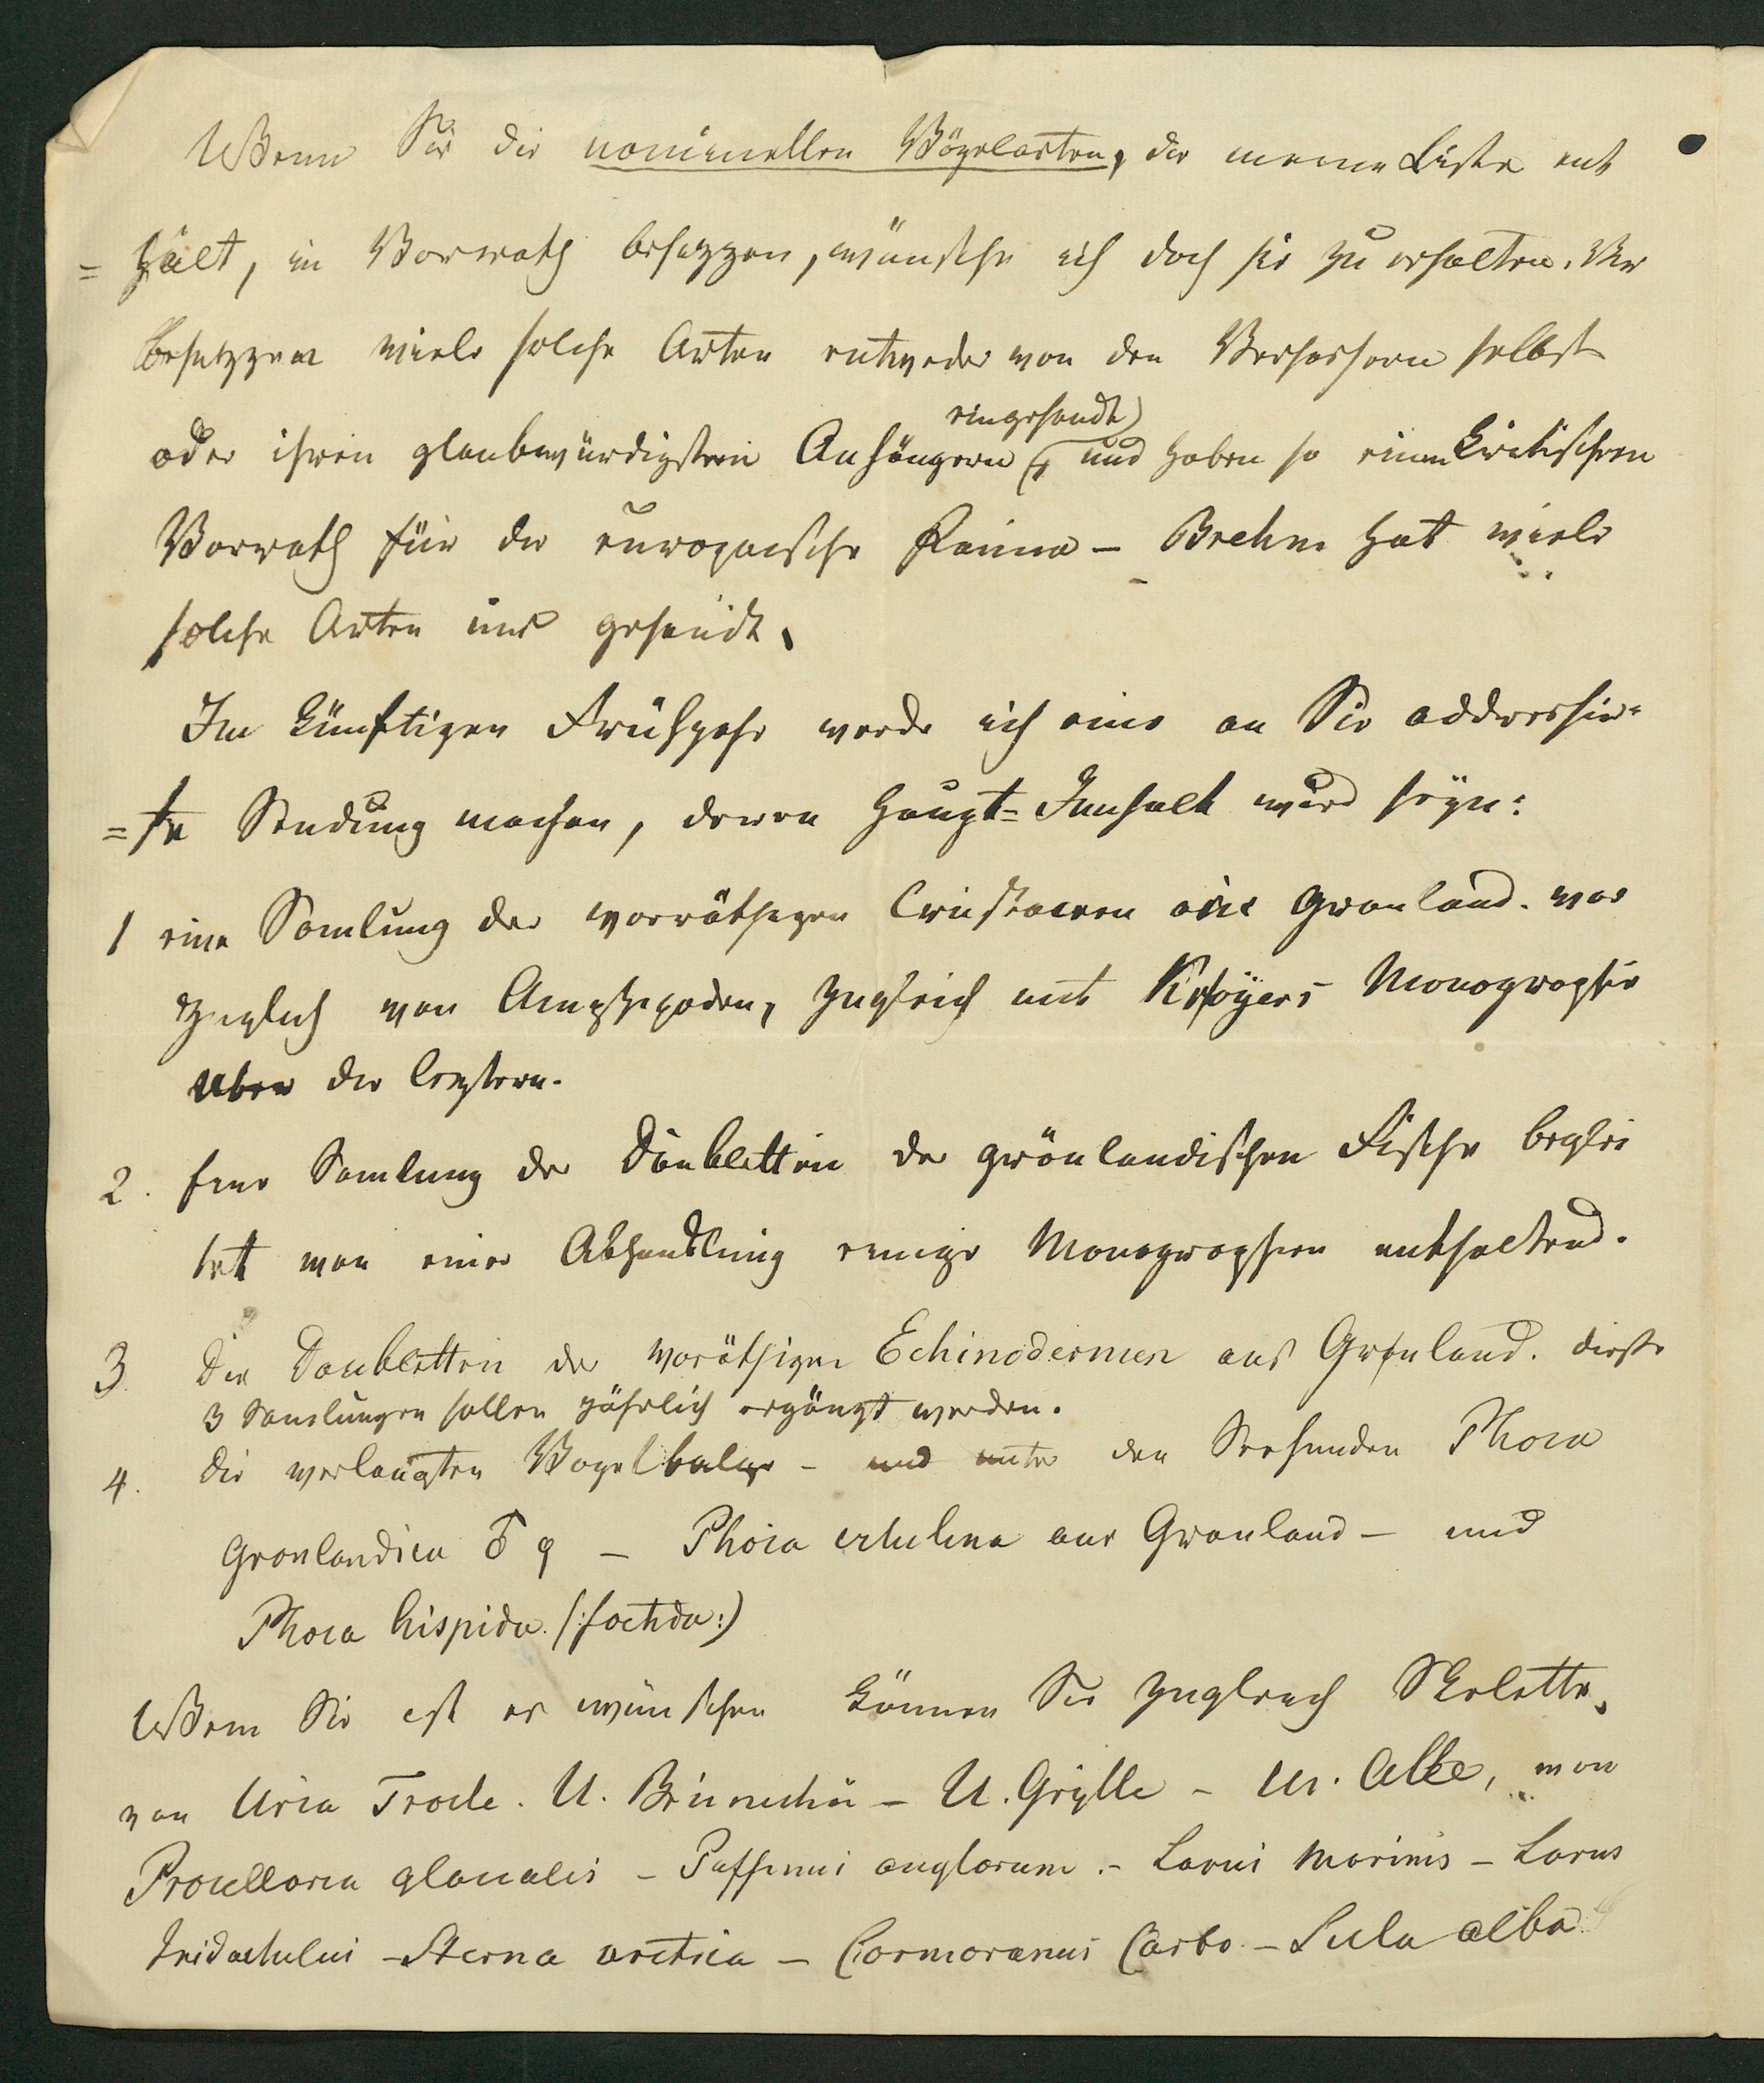 Wenn Sie die nominellen Vögelarten, die meine Liste ent
= hält, in Vorrath besizzen, wünsche ich doch sie zu erhalten. Wir
besizzen viele solche Arten entweder von den Verfassern selbst
oder ihren glaubwürdigsten Anhängern eingesandt, und haben so einen kritischen
Vorrath für die europæische Fauna – Brehm hat viele
solche Arten uns gesandt.
Im künftigen Frühjahr werde ich eine an Sie addressir=
= te Sendung machen, deren Haupt=Innhalt wird seyn:
1 eine Samlung der vorräthigen Crustaceen aus Gronland. vor
züglich von Amphipoden, zugleich mit Krøyers Monographie
uber die leztern.
2. Eine Samlung der Doubletten der grönlandischen Fische beglei
tet von einer Abhandlung einige Monographien enthaltend.
3 Die Doubletten der voräthigen Echinodermen aus Grønland. diese
3 Samlungen sollen jährlich ergänzt werden.
4. die verlangten Vogelbalge – und unter den Seehunden Phoca
Gronlandica ♂ ♀ – Phoca vitulina aus Gronland – und
Phoca hispida (:foetida:)
Wenn Sie est es wünschen können Sie zugleich Skelette,
von Uria Troile. U. Brünichii – U. Grylle – Ur. Alle, von
Procellaria glacialis – Puffinus anglorum. – Larus marinus – Larus
tridactulus – Sterna arctica – Cormoranus Carbo. – Sula alba